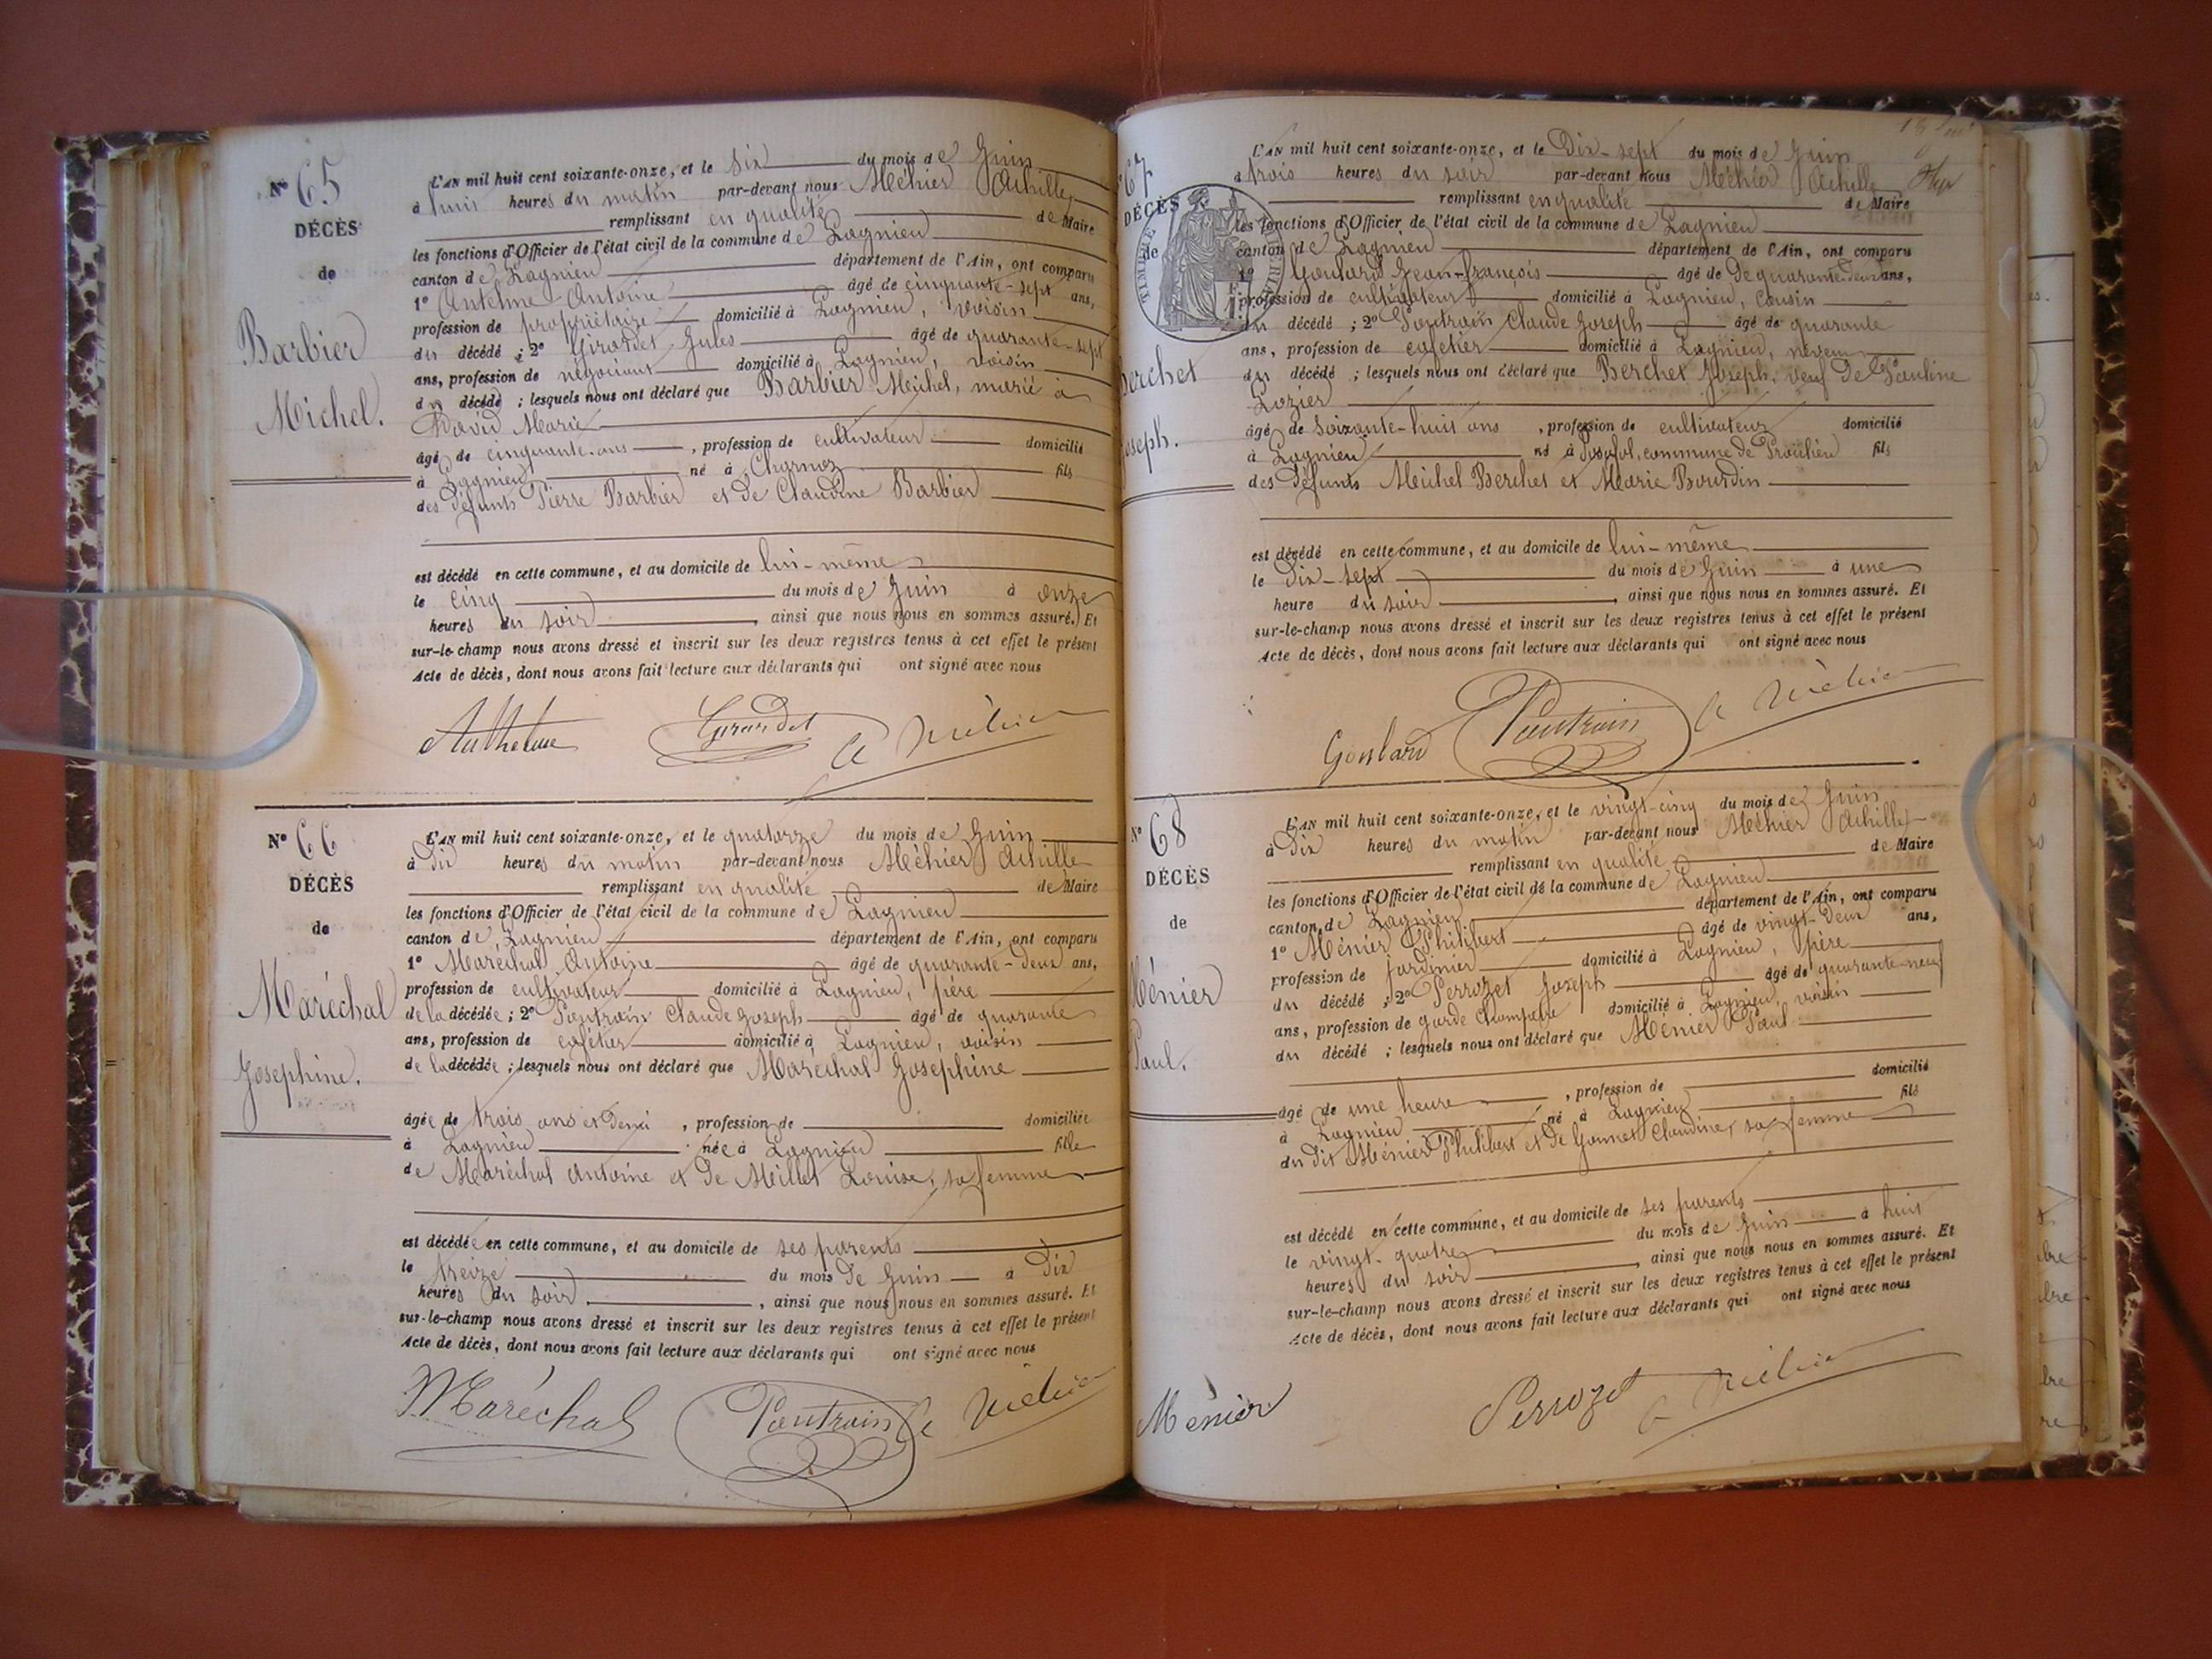 N° 65
DÉCÈS
de
Barbier
Michel.
L'AN mil huit cent soixante-onze, et le six du mois de Juin
à huit heures du matin par-devant nous Méhier Achille
remplissant en qualité de Maire
les fonctions d'Officier de l'état civil de la commune de Lagnieu
canton de Lagnieu département de l'Ain, ont comparu
1° Antoine âgé de cinquante-sept ans,
profession de propriétaire domicilié à Lagnieu, voisin
du décédé ; 2° Girardet Jules âgé de quarante-sept
ans, profession de négociant domicilié à Lagnieu, voisin
du décédé ; lesquels nous ont déclaré que Barbier Michel, marié à
David Marie
âgé de cinquante ans, profession de cultivateur domicilié
à Lagnieu né à Charnoz fils
des défunts Pierre Barbier et de Claudine Barbier
est décédé en cette commune, et au domicile de lui-même
le cinq du mois de Juin à onze
heures du soir, ainsi que nous nous en sommes assuré. Et
sur-le-champ nous avons dressé et inscrit sur les deux registres tenus à cet effet le présent
Acte de décès, dont nous avons fait lecture aux déclarants qui ont signé avec nous
Girardet A Méhier
N° 66
DÉCÈS
de
Maréchal
Josephine.
L'AN mil huit cent soixante-onze, et le quatorze du mois de Juin
à dix heures du matin par-devant nous Méhier Achille
remplissant en qualité de Maire
les fonctions d'Officier de l'état civil de la commune de Lagnieu
canton de Lagnieu département de l'Ain, ont comparu
1° Maréchal Antoine âgé de quarante-deux ans,
profession de cultivateur domicilié à Lagnieu, père
de la décédée ; 2° Poutrain Claude Joseph âgé de quarante
ans, profession de cafetier domicilié à Lagnieu, voisin
de la décédée ; lesquels nous ont déclaré que Maréchal Josephine
âgée de trois ans et demi, profession de domiciliée
à Lagnieu née à Lagnieu fille
de Maréchal Antoine et de Millet Louise, sa femme
est décédée en cette commune, et au domicile de ses parents
le treize du mois de Juin à dix
heures du soir, ainsi que nous nous en sommes assuré. Et
sur-le-champ nous avons dressé et inscrit sur les deux registres tenus à cet effet le présent
Acte de décès, dont nous avons fait lecture aux déclarants qui ont signé avec nous
Maréchal Poutrain A Méhier
67
DÉCÈS
de
Berchet
Joseph.
L'AN mil huit cent soixante-onze, et le Dix-sept du mois de Juin
à trois heures du soir par-devant nous Méhier Achille
remplissant en qualité de Maire
les fonctions d'Officier de l'état civil de la commune de Lagnieu
canton de Lagnieu département de l'Ain, ont comparu
1° Goulard Jean-françois âgé de de quarante-deux ans,
profession de cultivateur domicilié à Lagnieu, cousin
du décédé ; 2° Poutrain Claude Joseph âgé de quarante
ans, profession de cafetier domicilié à Lagnieu, neveu
du décédé ; lesquels nous ont déclaré que Berchet Joseph, veuf de Pauline
Lozier
âgé de soixante-huit ans, profession de cultivateur domicilié
à Lagnieu né à Posafol, commune de Proulieu fils
des défunts Michel Berchet et Marie Bourdin
est décédé en cette commune, et au domicile de lui-même
le dix-sept du mois de Juin à une
heure du soir, ainsi que nous nous en sommes assuré. Et
sur-le-champ nous avons dressé et inscrit sur les deux registres tenus à cet effet le présent
Acte de décès, dont nous avons fait lecture aux déclarants qui ont signé avec nous
Goulard Poutrain A Méhier
N° 68
DÉCÈS
de
Ménier
Paul.
L'AN mil huit cent soixante-onze, et le vingt-cinq du mois de Juin
à dix heures du matin par-devant nous Méhier Achille
remplissant en qualité de Maire
les fonctions d'Officier de l'état civil de la commune de Lagnieu
canton de Lagnieu département de l'Ain, ont comparu
1° Ménier Philibert âgé de vingt-deux ans,
profession de jardinier domicilié à Lagnieu, père
du décédé ; 2° Perrozet Joseph âgé de quarante-neuf
ans, profession de garde champetre domicilié à Lagnieu, voisin
du décédé ; lesquels nous ont déclaré que Ménier Paul
âgé de une heure, profession de domicilié
à Lagnieu né à Lagnieu fils
du dit Ménier Philibert et de Gonnet Claudine, sa femme
est décédé en cette commune, et au domicile de ses parents
le vingt-quatre du mois de Juin à huit
heures du soir, ainsi que nous nous en sommes assuré. Et
sur-le-champ nous avons dressé et inscrit sur les deux registres tenus à cet effet le présent
Acte de décès, dont nous avons fait lecture aux déclarants qui ont signé avec nous
Ménier Perrozet A Méhier